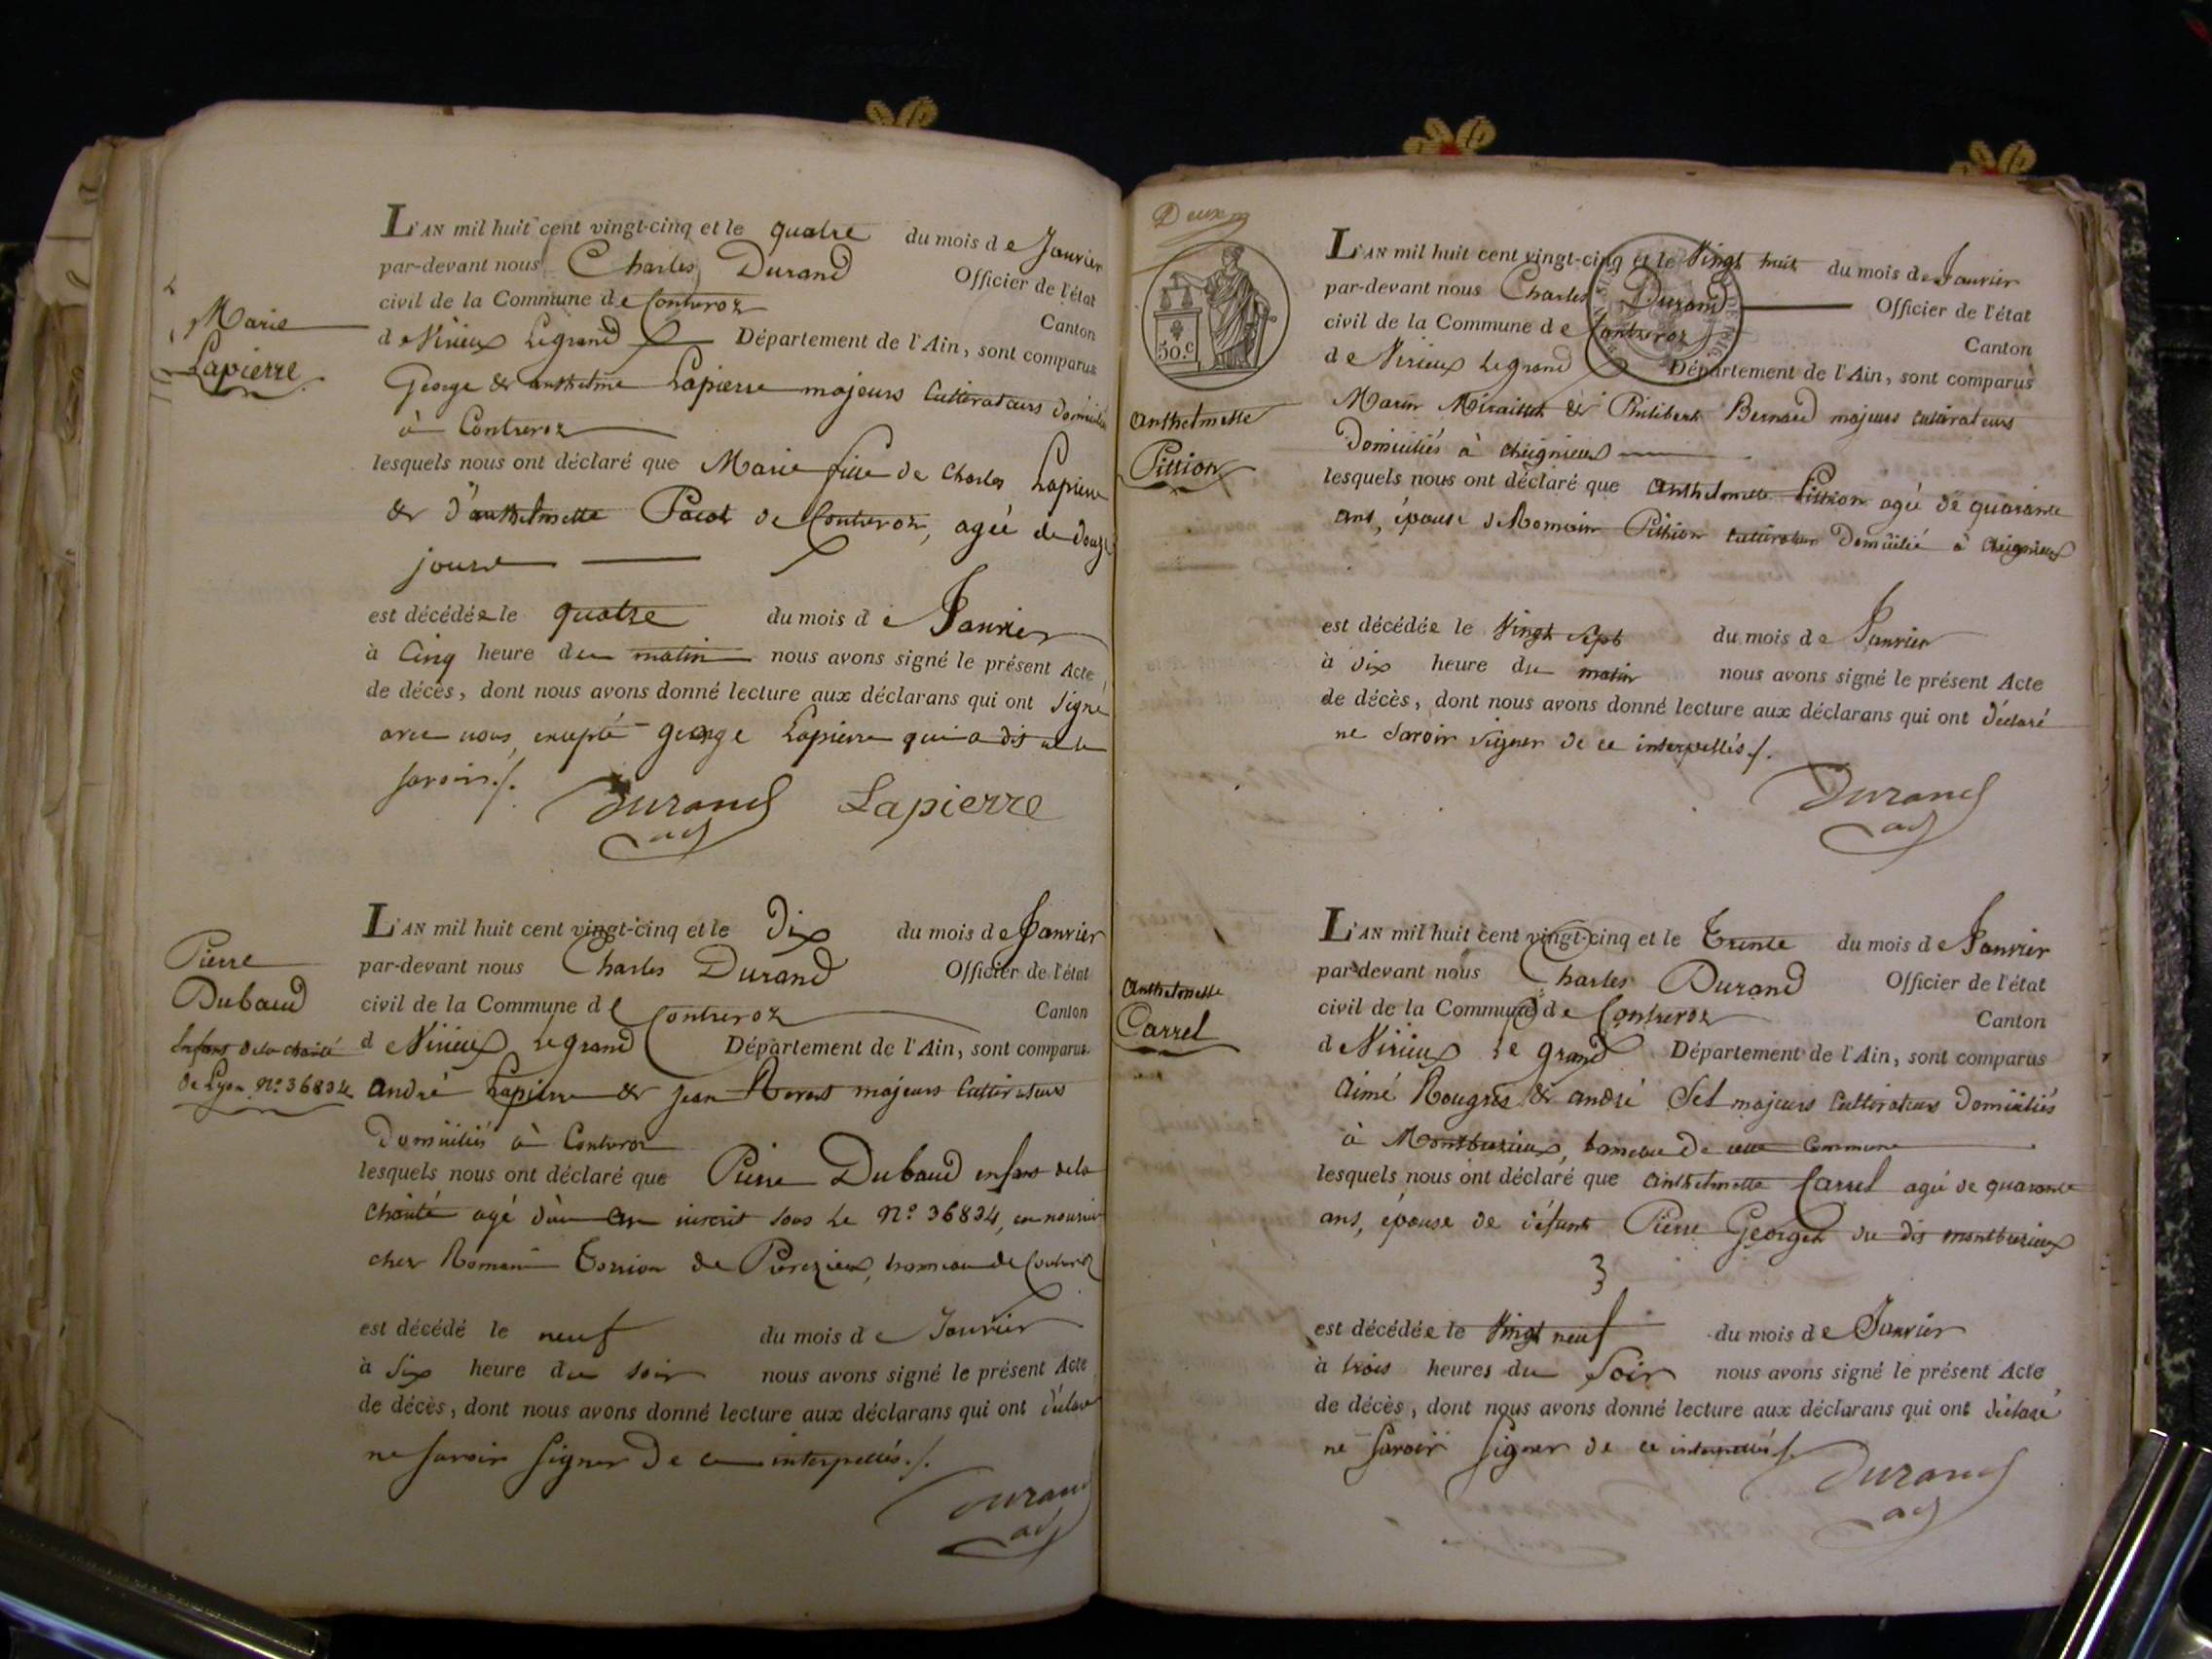 Marie
Lapierre
L'AN mil huit cent vingt-cinq et le quatre du mois de Janvier
par-devant nous Charles Durand Officier de l'état
civil de la Commune de Contrevoz Canton
de Virieux Legrand Département de l'Ain, sont comparus
George & anthelme Lapierre majeurs Cultivateurs
à Contrevoz
lesquels nous ont déclaré que Marie fille de Charles Lapierre
& d'anthelmette de Contrevoz, agée de douze
jours
est décédée le quatre du mois de Janvier
à Cinq heure du matin nous avons signé le présent Acte
de décès, dont nous avons donné lecture aux déclarans qui ont Signé
avec nous, excepté george Lapierre qui a dit ne le
savoir./.
Durand Lapierre
adj
Pierre
Dubaud
Enfant de la charité
de Lyon n.º 36834
L'AN mil huit cent vingt-cinq et le Dix du mois de Janvier
par-devant nous Charles Durand Officier de l'état
civil de la Commune de Contrevoz Canton
de Virieux Legrand Département de l'Ain, sont comparus
andré Lapierre & jean majeurs Cultivateurs
Domiciliés à Contrevoz
lesquels nous ont déclaré que Pierre Dubaud enfant de la
charité agé d'un an inscrit sous le n.º 36834, en
chez Romain de hameau de Contrevoz
est décédé le neuf du mois de Janvier
à Six heure du soir nous avons signé le présent Acte
de décès, dont nous avons donné lecture aux déclarans qui ont déclaré
ne Savoir Signer de ce interpellés./.
Durand
adj
50.c
anthelmette
Pittion
L'AN mil huit cent vingt-cinq et le Vingt huit du mois de Janvier
par-devant nous Charles Durand Officier de l'état
civil de la Commune de Contrevoz Canton
de Virieux Legrand Département de l'Ain, sont comparus
Marin & Philibert Bernard majeurs cultivateurs
Domiciliés à cheignieux
lesquels nous ont déclaré que anthelmette Pittion agée de quarante
ans, épouse de Romain Pittion cultivateur Domicilié à cheignieux
est décédée le Vingt Sept du mois de Janvier
à dix heure du matin nous avons signé le présent Acte
de décès, dont nous avons donné lecture aux déclarans qui ont déclaré
ne Savoir signer de ce interpellés./.
Durand
adj
anthelmette
Carrel
L'AN mil huit cent vingt-cinq et le Trente du mois de Janvier
par-devant nous Charles Durand Officier de l'état
civil de la Commune de Contrevoz Canton
de Virieux le grand Département de l'Ain, sont comparus
aimé & andré majeurs Cultivateurs Domiciliés
à Montbrezieux, hameau de cette Commune
lesquels nous ont déclaré que anthelmette Carrel agée de quarante
ans, épouse de défunt Pierre Georges du dit montbrezieux
est décédée le Vingt neuf du mois de Janvier
à trois heures du Soir nous avons signé le présent Acte
de décès, dont nous avons donné lecture aux déclarans qui ont déclaré
ne Savoir Signer de ce interpellés./.
Durand
adj